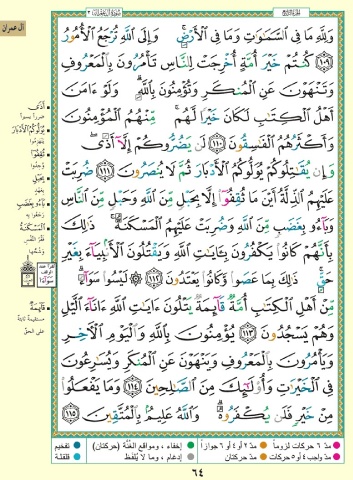 سُورَةُ آلِ عِمْرَان ٣
آل عمران
وَلِلَّهِ مَا فِي السَّمَاوَاتِ وَمَا فِي الْأَرْضِ ۚ وَإِلَى اللَّهِ تُرْجَعُ الْأُمُورُ
﴿١٠٩﴾ كُنتُمْ خَيْرَ أُمَّةٍ أُخْرِجَتْ لِلنَّاسِ تَأْمُرُونَ بِالْمَعْرُوفِ
وَتَنْهَوْنَ عَنِ الْمُنكَرِ وَتُؤْمِنُونَ بِاللَّهِ ۗ وَلَوْ ءَامَنَ
أَهْلُ الْكِتَابِ لَكَانَ خَيْرًا لَّهُم ۚ مِّنْهُمُ الْمُؤْمِنُونَ
وَأَكْثَرُهُمُ الْفَاسِقُونَ ﴿١١٠﴾ لَن يَضُرُّوكُمْ إِلَّا أَذًى ۖ
وَإِن يُقَاتِلُوكُمْ يُوَلُّوكُمُ الْأَدْبَارَ ثُمَّ لَا يُنصَرُونَ ﴿١١١﴾ ضُرِبَتْ
عَلَيْهِمُ الذِّلَّةُ أَيْنَ مَا ثُقِفُوا إِلَّا بِحَبْلٍ مِّنَ اللَّهِ وَحَبْلٍ مِّنَ النَّاسِ
وَبَاءُو بِغَضَبٍ مِّنَ اللَّهِ وَضُرِبَتْ عَلَيْهِمُ الْمَسْكَنَةُ ۚ ذَٰلِكَ
بِأَنَّهُمْ كَانُوا يَكْفُرُونَ بِـَٔايَاتِ اللَّهِ وَيَقْتُلُونَ الْأَنبِيَاءَ بِغَيْرِ
حَقٍّ ۚ ذَٰلِكَ بِمَا عَصَوا وَّكَانُوا يَعْتَدُونَ ﴿١١٢﴾ ۞ لَيْسُوا سَوَاءً ۗ
مِّنْ أَهْلِ الْكِتَابِ أُمَّةٌ قَائِمَةٌ يَتْلُونَ ءَايَاتِ اللَّهِ ءَانَاءَ اللَّيْلِ
وَهُمْ يَسْجُدُونَ ﴿١١٣﴾ يُؤْمِنُونَ بِاللَّهِ وَالْيَوْمِ الْآخِرِ
وَيَأْمُرُونَ بِالْمَعْرُوفِ وَيَنْهَوْنَ عَنِ الْمُنكَرِ وَيُسَارِعُونَ
فِي الْخَيْرَاتِ وَأُولَٰئِكَ مِنَ الصَّالِحِينَ ﴿١١٤﴾ وَمَا يَفْعَلُوا
مِنْ خَيْرٍ فَلَن يُكْفَرُوهُ ۗ وَاللَّهُ عَلِيمٌ بِالْمُتَّقِينَ ﴿١١٥﴾
أَذًى
ضررا يسيرا
يُوَلُّوكُمُ الْأَدْبَارَ
ثُقِفُوا
وُجدوا
بِحَبْلٍ
بعهد
بَاءُو بِغَضَبٍ
رجعوا به
الْمَسْكَنَةُ
قَائِمَةٌ
مستقيمة ثابتة
على الحق
مدّ ٦ حركات لزوماً
مدّ ٢ أو ٤ أو ٦ جوازاً
إخفاء، ومواقع الغُنَّة (حركتان)
تفخيم
مدّ واجب ٤ أو ٥ حركات
مدّ حركتان
إدغام، وما لا يُلفظ
قلقلة
٦٤